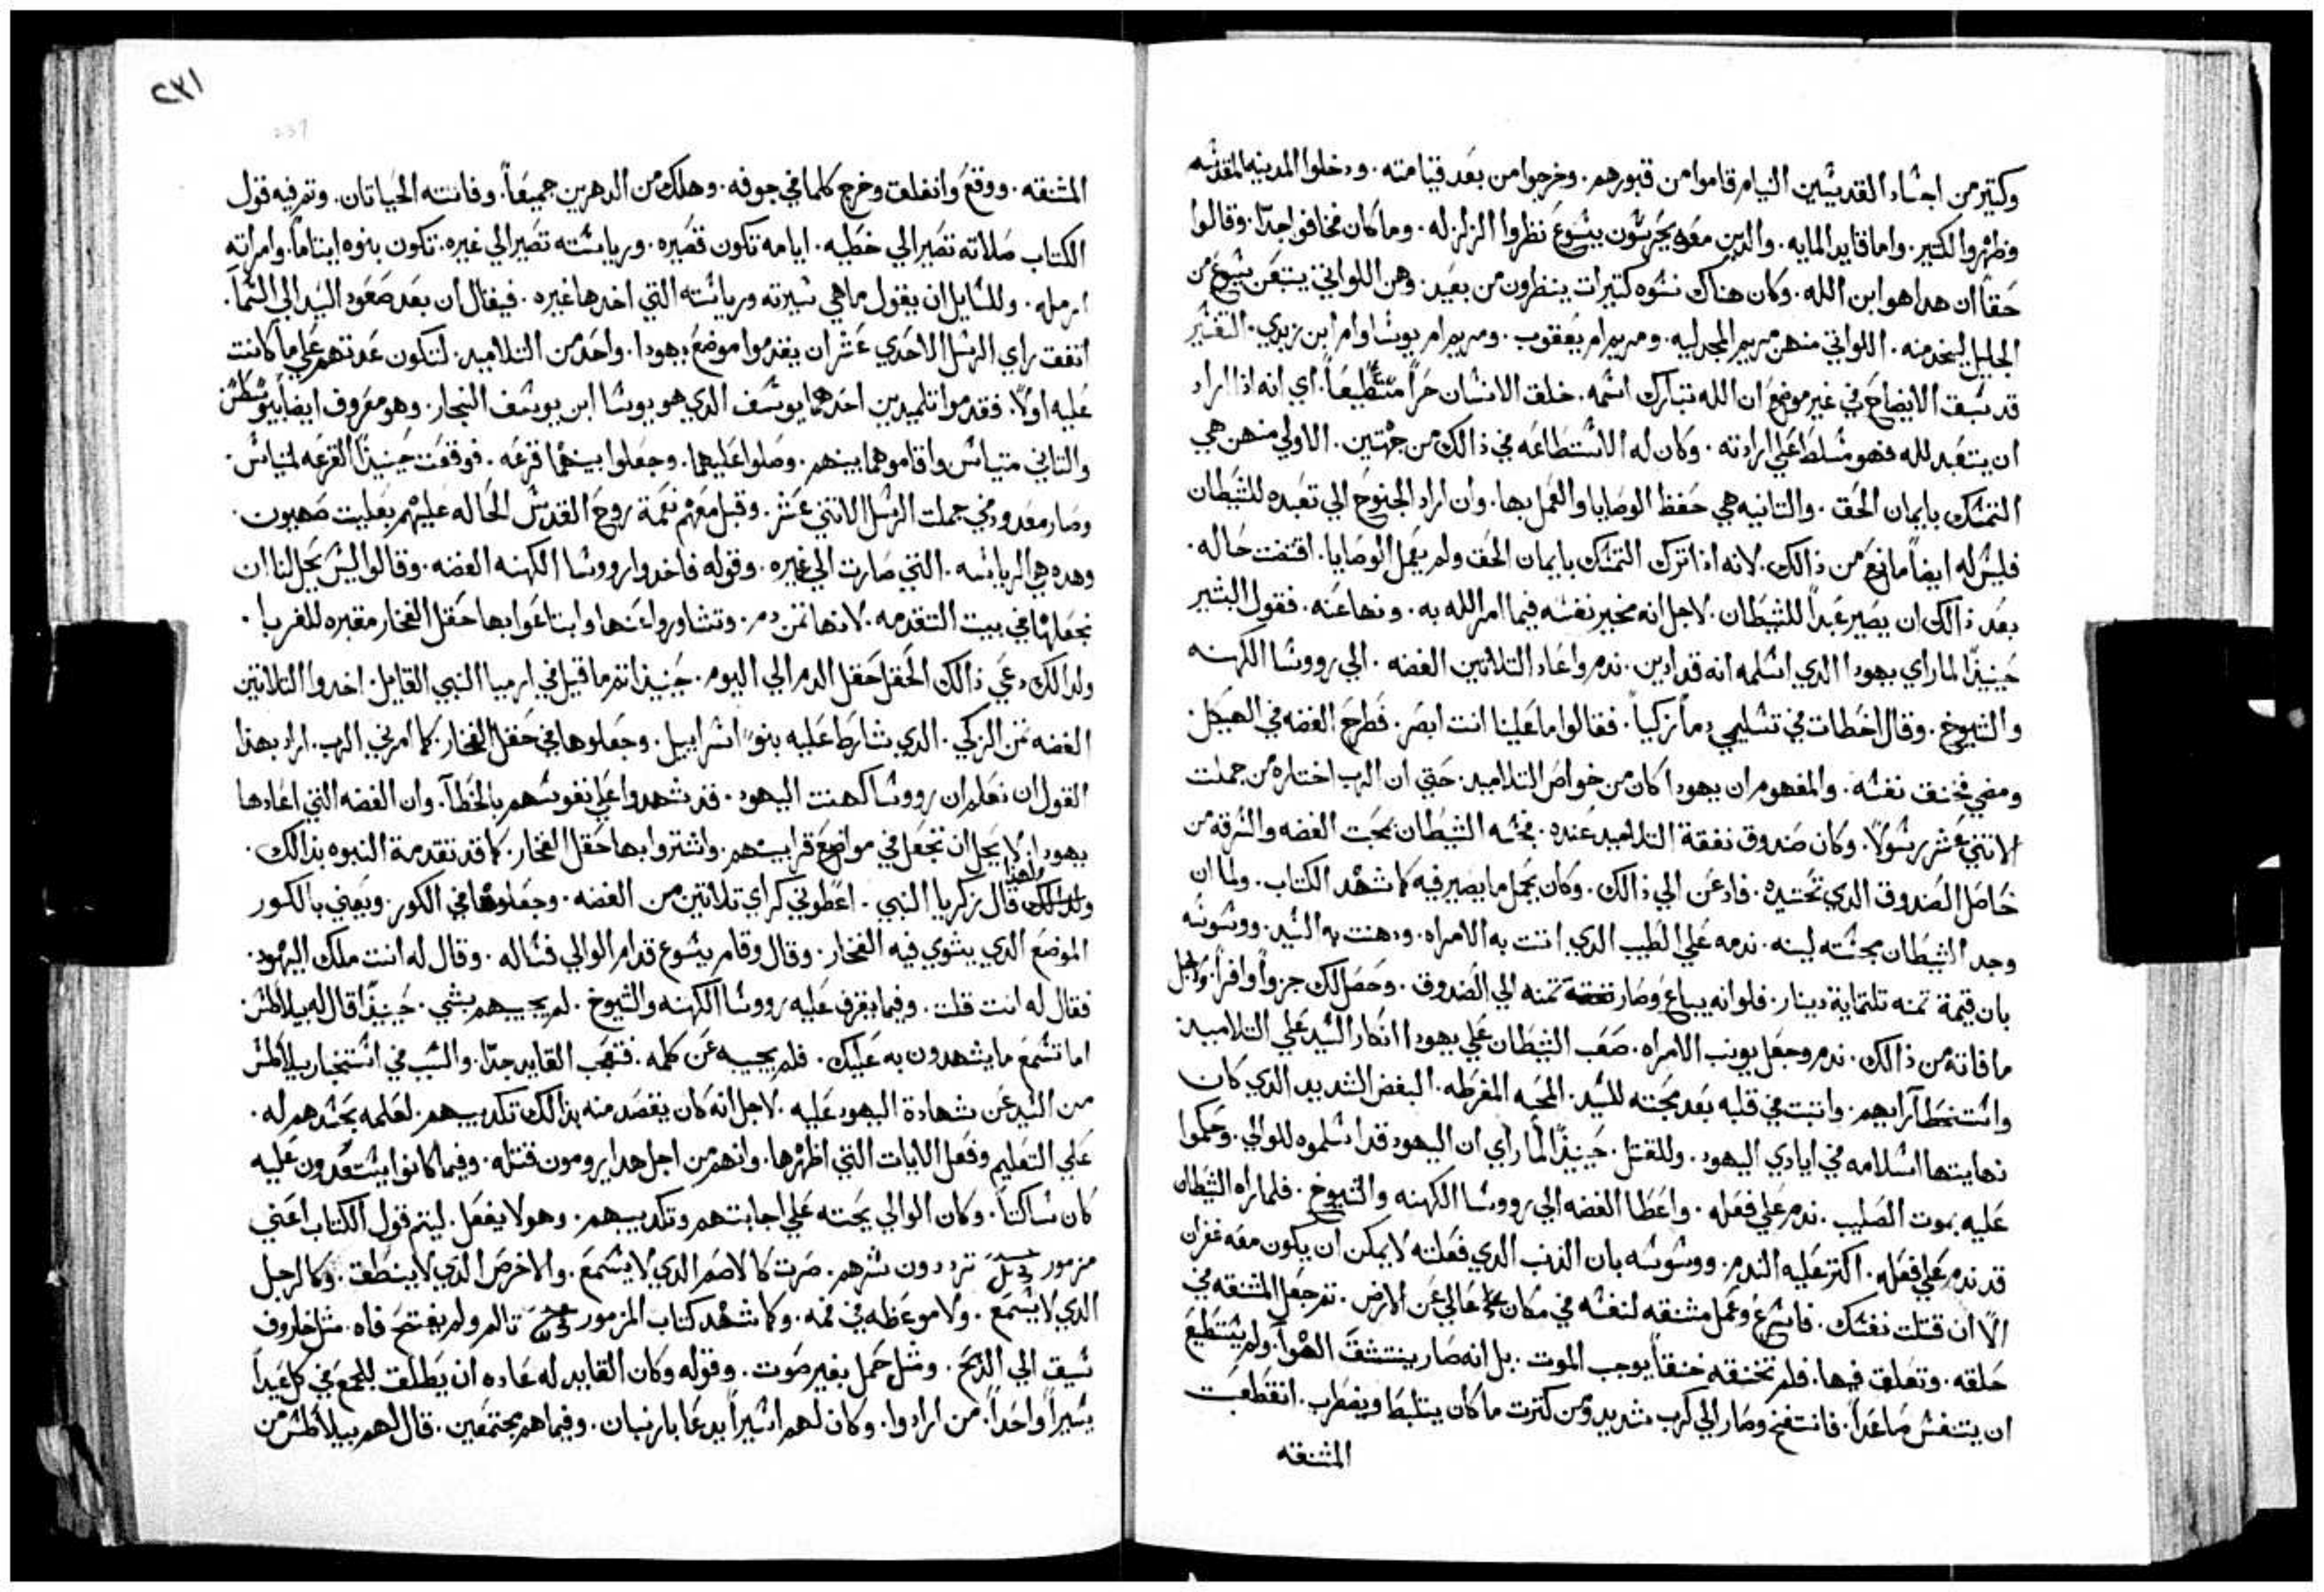 وكتير من اجساد القديسين النيام قاموا من قبورهم. وخرجوا من بعد قيامته. ودخلوا المدينه المقدسه
وظهروا لكتير. واما قايد المايه. والدين معه يحرسون يسوع نظروا الزلزله. وما كان فخافوا جدًا. وقالوا
حقًا ان هدا هو ابن الله. وكان هناك نسوه كتيرات ينظرون من بعيد. وهن اللواتي يتبعن يسوع من
الجليل ليخدمنه. اللواتي منهن مريم المجدليه. ومريم ام يعقوب. ومريم ام يوسا وام ابن زبدي. التفسير
قد سبق الايضاح في غير موضع ان الله تبارك اسمه. خلق الانسان حرًا مستطيعًا. اي انه اذا اراد
ان يتعبد لله فهو مسلط علي ارادته. وكان له الاستطاعه في ذالك من جهتين. الاولي منهن هي
التمسك بايمان الحق. والتانيه هي حفظ الوصايا والعمل بها. وان اراد الجنوح الي تعبده للشيطان
فليس له ايضًا مانع من ذالك. لانه اذا ترك التمسك بايمان الحق ولم يعمل الوصايا. اقتضت حاله.
بعد ذالك ان يصير عبدًا للشيطان. لاجل انه مخير نفسه فيما امر الله به. ونها عنه. فقول البشير
حينيذًا لما راي يهودا الدي اسلمه انه قد ادين. ندم واعاد التلاتين الفضه. الي رووسا الكهنه
والشيوخ. وقال اخطات في تسليمي دمًا زكيًا. فقالوا ما علينا انت ابصر. فطرح الفضه في الهيكل
ومضي فخنق نفسه. والمفهوم ان يهودا كان من خواص التلاميد. حتي ان الرب اختاره من جملت
الاتني عشر رسولًا. وكان صندوق نفقة التلاميد عنده. فحسه الشيطان بحب الفضه والسرقه من
حاصل الصندوق الدي تحت يده. فادعن الي ذالك. وكان يحمل ما يصير فيه كما شهد الكتاب. ولما ان
وجد الشيطان بحسته لينه. ندمه علي الطيب الدي اتت به الامراه. ودهنت به السيد. ووسوسه
بان قيمة تمنه تلتماية دينار. فلو انه يباع وصار تمنه الي الصندوق. وحصل لك جزوًا وافرًا. ولاجل
ما فاته من ذالك. ندم وجعل يونب الامراه. صعب الشيطان علي يهودا انكار السيد علي التلاميد
واستخطا آرايهم. واتبت في قلبه بعد محبته للسيد. المحبه المفرطه. البغض الشديد الدي كان
نهايتها اسلامه في ايادي اليهود. وللقتل. حينيذًا لما راي ان اليهود قد اسلموه للوالي. وحكموا
عليه بموت الصليب. ندم علي فعله. واعطا الفضه الي رووسا الكهنه والشيوخ. فلما راه الشيطان
قد ندم علي فعله. اكتر عليه الندم. ووسوسه بان الذنب الدي فعلته لا يمكن ان يكون معه غفران
الا ان قتلت نفسك. فاسرع وعمل مشنقه لنفسه في مكان عالي عن الارض. تم جعل المشنقه في
حلقه. وتعلق فيها. فلم تخنقه خنقًا يوجب الموت. بل انه صار ينتشق الهوآ. ولم يستطيع
ان يتنفس صاعدًا. فانتفخ وصار الي كرب شديد ومن كترت ما كان يتلبط ويضطرب. انقطعت
المشنقه
٢٣١
المشنقه. ووقع وانفلق وخرج كلما في جوفه. وهلك من الدهرين جميعًا. وفاتته الحياتان. وتم فيه قول
الكتاب صلاته تصير الي خطيه. ايامه تكون قصيره. ورياسته تصير الي غيره. تكون بنوه ايتامًا. وامراته
ارمله. وللسايل ان يقول ما هي سيرته ورياسته التي اخدها غيره. فيقال ان بعد صعود السيد الي السمآ.
اتفقت راي الرسل الاحدي عشر ان يقدموا موضع يهودا. واحد من التلاميد. لتكون عدتهم علي ما كانت
عليه اولًا. فقدموا تلميدين احدهما يوسف الدي هو يوسا ابن يوسف النجار. وهو معروف ايضًا بيوسطس
والتاني متياس واقاموهما بينهم. وصلوا عليهما. وجعلوا بينهما قرعه. فوقعت حينيذًا القرعه لمتياس.
وصار معدود في جملت الرسل الاتني عشر. وقبل معهم نعمة روح القدس الحاله عليهم بعليت صهيون.
وهده هي الرياسه. التي صارت الي غيره. وقوله فاخدوا رووسا الكهنه الفضه. وقالوا ليس يحل لنا ان
نجعلها في بيت التقدمه. لانها تمن دم. وتشاوروا عنها وابتاعوا بها حقل الفخار مقبره للغربا.
ولدالك دعي ذالك الحقل حقل الدم الي اليوم. حينيذا تم ما قيل في ارميا النبي القايل. اخدوا التلاتين
الفضه تمن الزكي. الدي شارطا عليه بنو اسراييل. وجعلوها في حقل الفخار. كما امرني الرب. اراد بهذا
القول ان نعلم ان رووسا كهنت اليهود. قد شهدوا علي نفوسهم بالخطآ. وان الفضه التي اعادها
يهودا. لا يحل ان تجعل في مواضع قرابينهم. واشتروا بها حقل الفخار. كما قد تقدمة النبوه بذالك.
ولهذا قال زكريا النبي. اعطوني كراي تلاتين من الفضه. وجعلوها في الكور. ويعني بالكور
الموضع الدي يشوي فيه الفخار. وقال وقام يسوع قدام الوالي فساله. وقال له انت ملك اليهود.
فقال له انت قلت. وفيما يقرف عليه رووسا الكهنه والشيوخ. لم يجيبهم بشي. حينيذًا قال له بيلاطس
اما تسمع ما يشهدون به عليك. فلم يجيبه عن كلمه. فتعجب القايد جدًا. والسبب في استخبار بيلاطس
من السيد عن شهادة اليهود عليه. لاجل انه كان يقصد منه بذالك تكديبهم. لعلمه بحسدهم له.
علي التعليم وفعل الايات التي اظهرها. وانهم من اجل هدا يرومون قتله. وفيما كانوا يستعدون عليه
كان ساكتًا. وكان الوالي يحته علي اجابتهم وتكديبهم. وهو لا يفعل. ليتم قول الكتاب اعني
مزمور ترددون شرهم. صرت كالاصم الدي لا يسمع. والاخرص الدي لا ينطق. وكالرجل
الدي لا يسمع. ولا موعظه في فمه. وكما شهد كتاب المزمور تالم ولم يفتح فاه. مثل خاروف
سيق الي الدبح. ومثل حمل بغير صوت. وقوله وكان القايد له عاده ان يطلق للجمع في كل عيدًا
يسيرًا واحدًا. من ارادوا. وكان لهم اسيرًا يدعا بارنبان. وفيما هم مجتمعين. قال لهم بيلاطس من